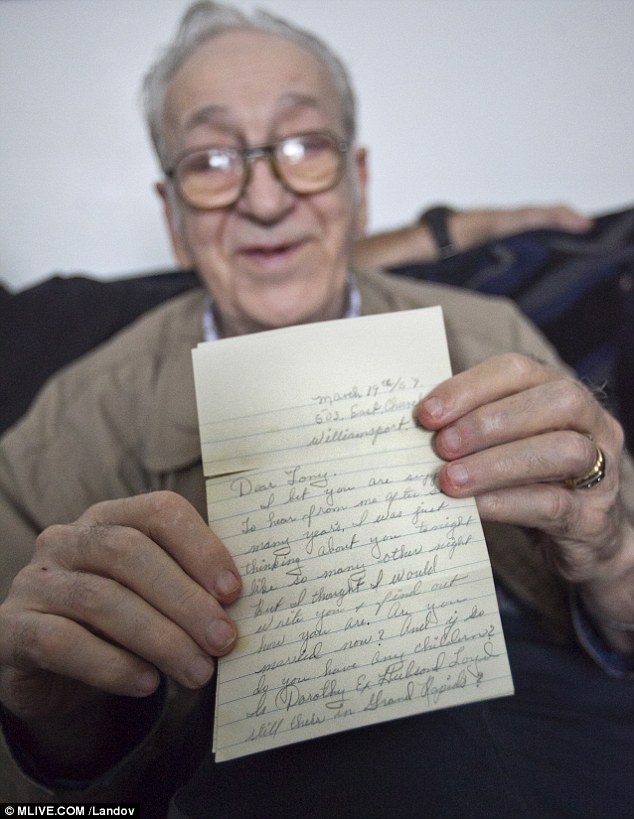 March 19th
502 East
Williamsport
Dear Tony,
I bet you are
To hear from me after so
many years. I was just
thinking about you tonight
like so many other night
But I thought I would
write you & find out
how you are. Are you
married now? And if so
do you have any children?
Is Dorothy Ex Husband Loyd
still there in Grand Rapids?
© MLIVE.COM /Landov